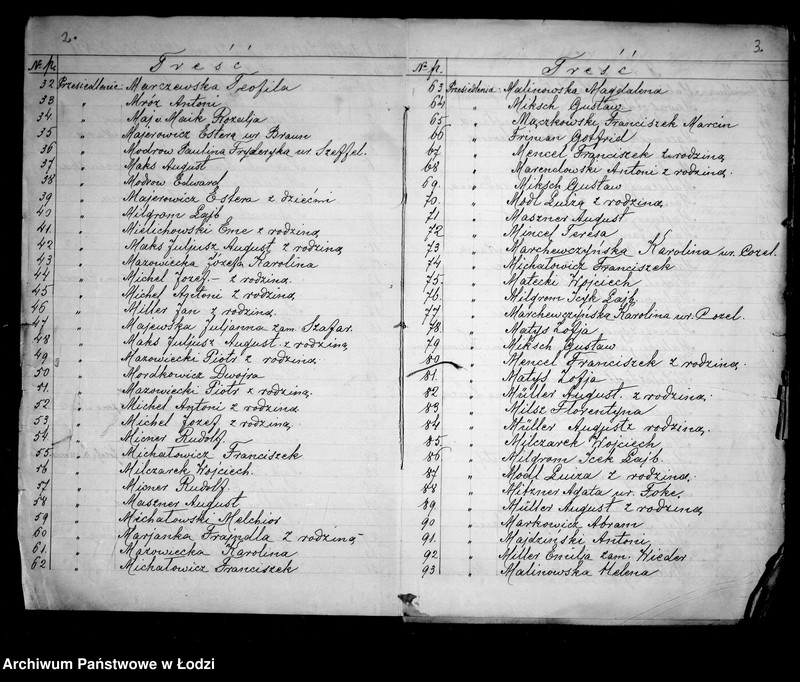 2.
Nr. p. Treść
32 Przesiedlenie: Marczewska Teofila
33 " Mróz Antoni
34 " Maj v. Maik Rozalja
35 " Majerowicz Estera ur. Braun
36 " Modrow Paulina Fryderyka ur. Szeffel.
37 " Maks August
38 " Modrow Edward
39 " Majerowicz Estera z dziećmi
40 " Milgrom Lajb
41. " Mielichowski Eme z rodziną
42 " Maks Juljusz August z rodziną
43 " Mazowiecka Józefa Karolina
44 " Michel Jozef – z rodziną.
45 " Michel Antoni z rodziną
46 " Miller Jan z rodziną.
47 " Majewska Juljanna zam. Szafar.
48 " Maks Juljusz August z rodziną
49 " Mazowiecki Piotr z rodziną.
50 " Mordkowicz Dwojra
51. " Mazowiecki Piotr z rodziną.
52 " Michel Antoni z rodziną
53 " Michel Jozef z rodziną.
54 " Misner Rudolf
55 " Michałowicz Franciszek
56 " Milczarek Wojciech.
57 " Misner Rudolf
58 " Maszner August
59 " Michałowski Melchior
60 " Marjanka Frajndla z rodziną
61. " Mazowiecka Karolina
62 " Michałowicz Franciszek
3.
Nr. p. Treść
63 Przesiedlenia: Malinowska Magdalena
64 " Miksch Gustaw
65 " Maczkowski Franciszek Marcin
66 " Friman Gotfrid
67 " Mencel Franciszek z rodziną
68 " Marendowski Antoni z rodziną.
69. " Miksch Gustaw
70. " Modl Luiza z rodziną
71. " Maszner August
72 " Mincel Teresa
73 " Marchewczyńska Karolina ur. Cozel.
74 " Michałowicz Franciszek
75 " Matecki Wojciech
76. " Milgrom Icyk Lajb
77 " Marchewczyńska Karolina ur. Cozel.
78 " Matys Zofja
79 " Miksch Gustaw
80 " Mencel Franciszek z rodziną.
81. " Matys Zofja
82 " Müller August z rodziną.
83 " Milsz Florentyna
84 " Müller August z rodziną.
85 " Milczarek Wojciech
86 " Milgrom Icek Lajb.
87 " Modl Luiza z rodziną.
88 " Mitzner Agata ur. Foke.
89. " Müller August z rodziną
90 " Markowicz Abram
91. " Majdziński Antoni
92 " Miller Emilja zam. Wieder
93 " Malinowska Helena
Archiwum Państwowe w Łodzi